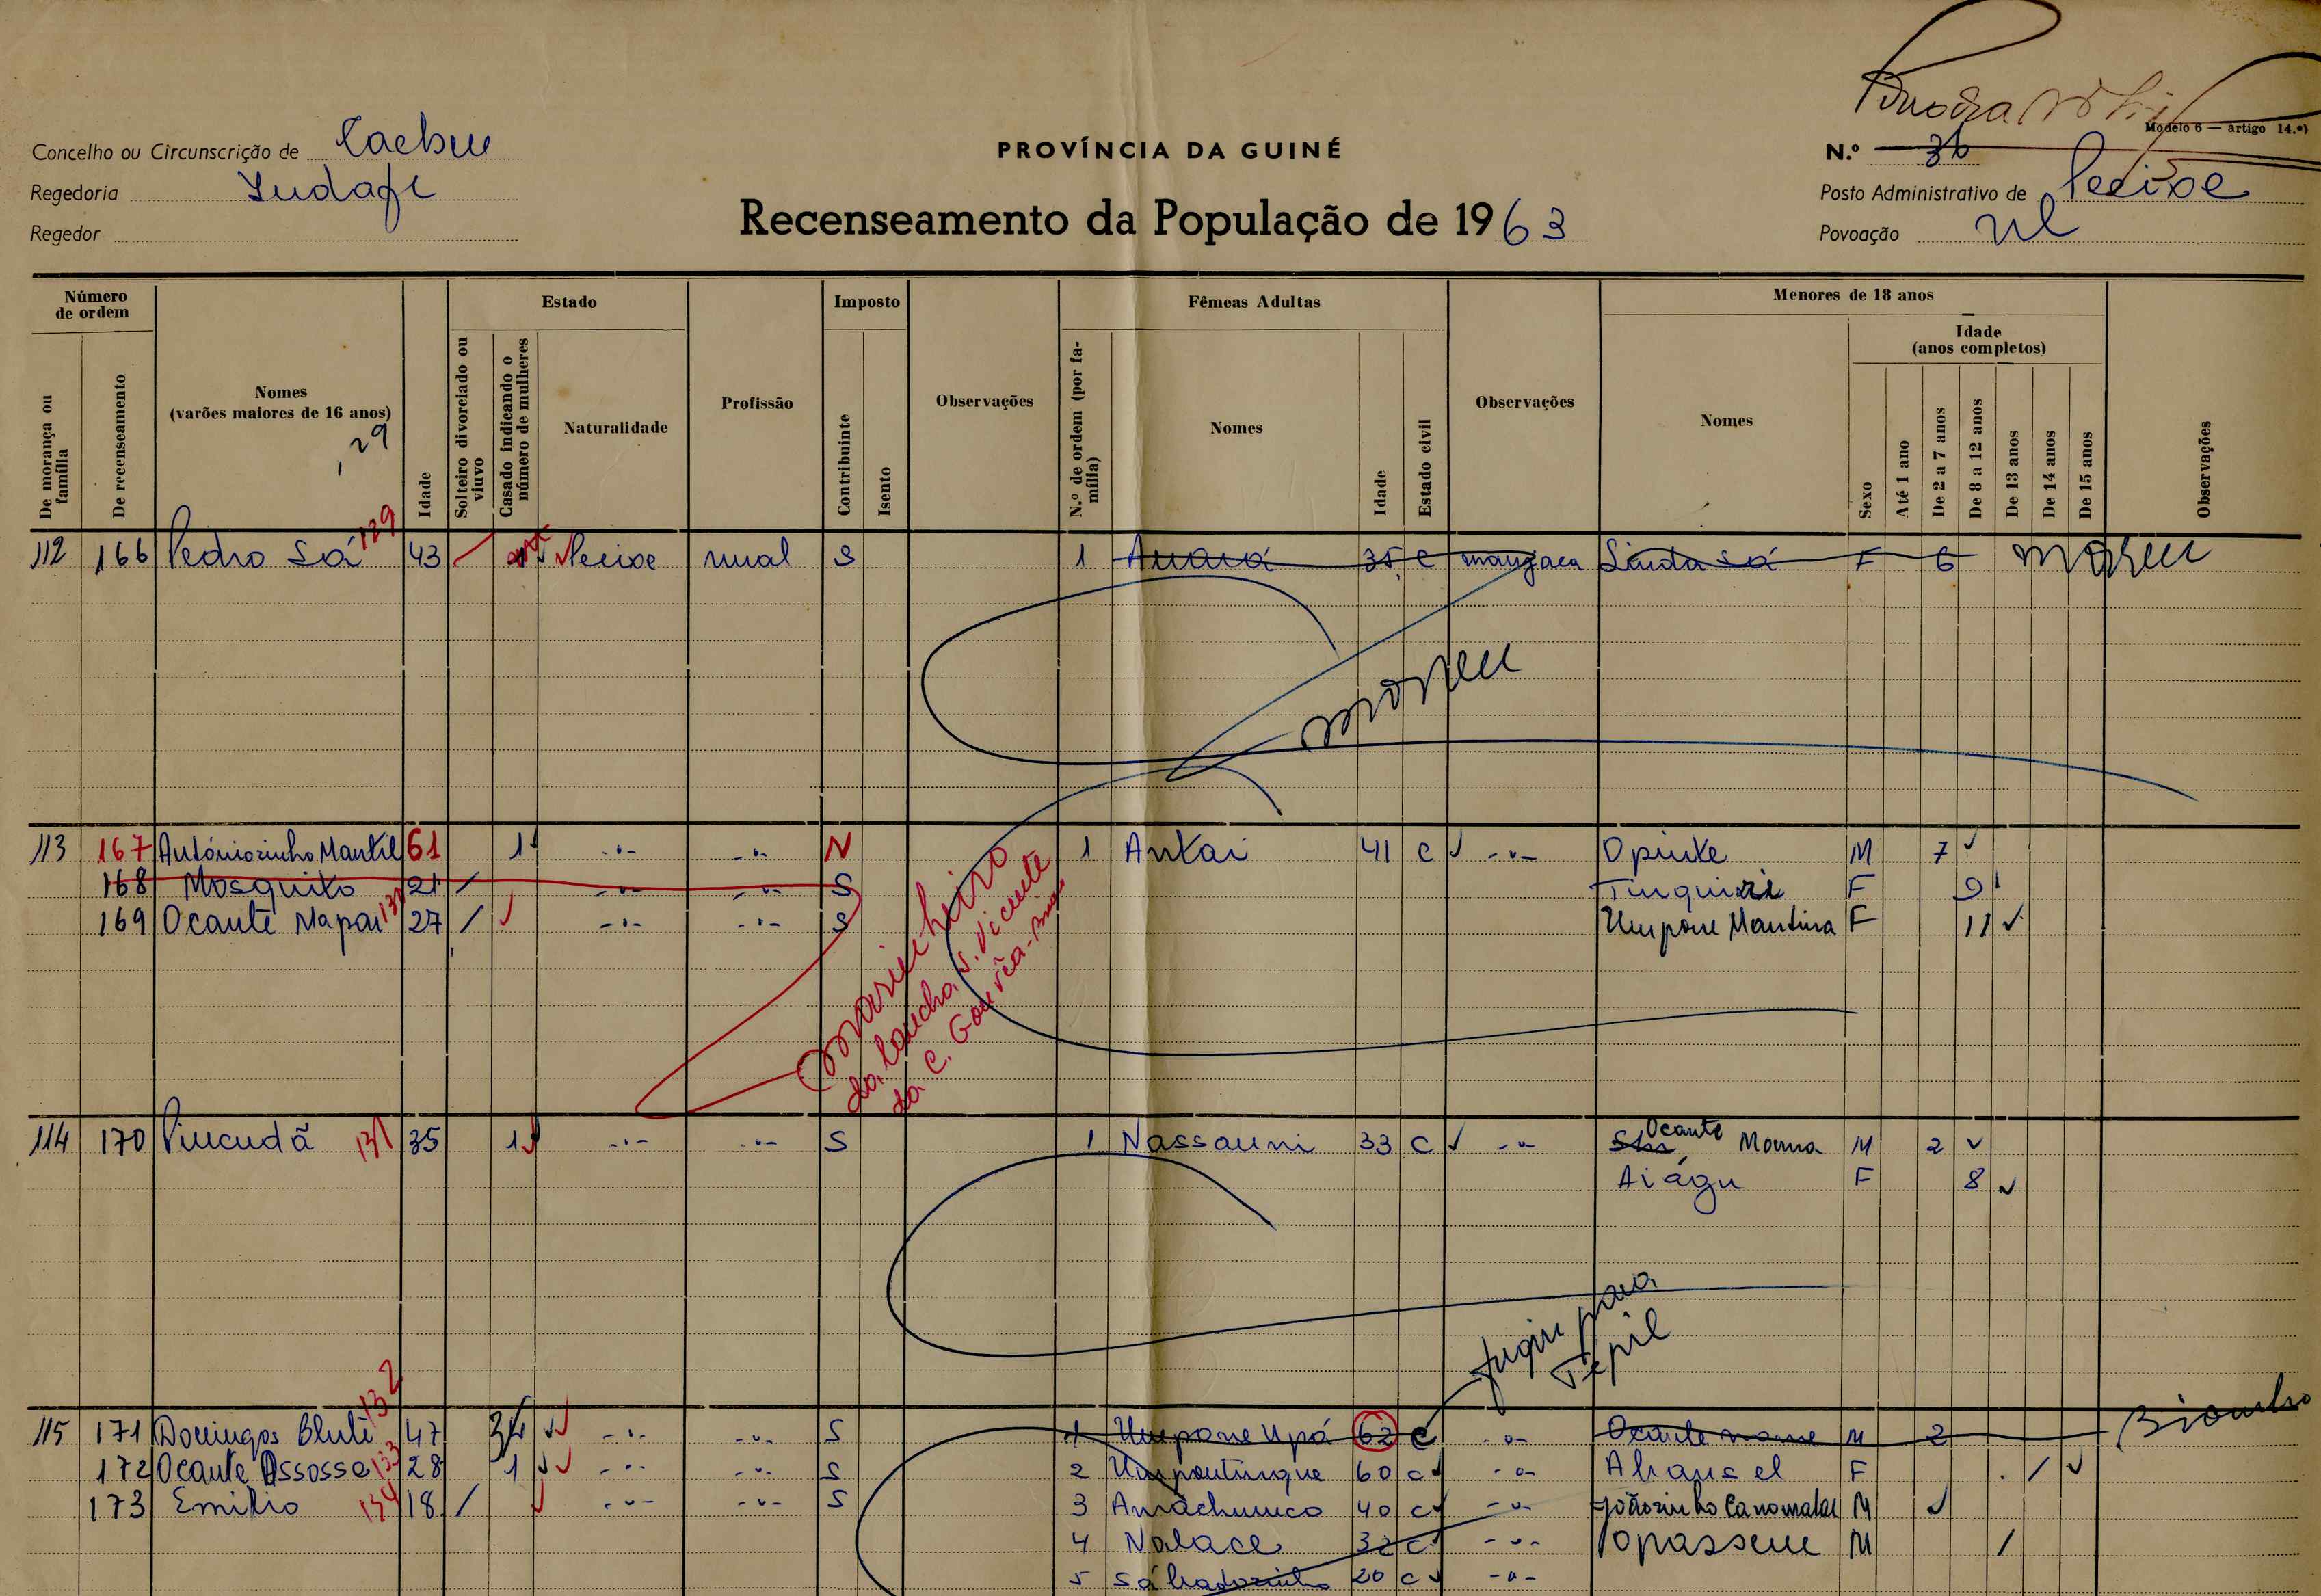 Modelo 6 — artigo 14.º)
Concelho ou Circunscrição de Cacheu
PROVÍNCIA DA GUINÉ
N.º 36
Regedoria
Posto Administrativo de Pecixe
Recenseamento da População de 1963
Regedor
Povoação
Número de ordem
Estado
Imposto
Fêmeas Adultas
Menores de 18 anos
Idade
(anos completos)
De morança ou família
De recenseamento
Nomes
(varões maiores de 16 anos)
Idade
Solteiro divorciado ou viuvo
Casado indicando o número de mulheres
Naturalidade
Profissão
Contribuinte
Isento
Observações
N.º de ordem (por família)
Nomes
Idade
Estado civil
Observações
Nomes
Sexo
Até 1 ano
De 2 a 7 anos
De 8 a 12 anos
De 13 anos
De 14 anos
De 15 anos
Observações
29
129
112 166 Pedro Sá 43 Pecixe rural S 1 35 C manjaca Sá F 6 Morreu
morreu
113 167 Antóniozinho Mantil 61 1 -"- -"- N 1 Antai 41 C -"- Opinte M 7
168 Mosquito 21 / -"- -"- S F 9
169 Ocante Napau 27 / -"- -"- S Umpone Mantina F 11
marinheiro
da lancha S. Vicente
da C. Gouvêa
114 170 Pincudã 131 35 1 -"- -"- S 1 Nassauni 33 C -"- Ocante Mouna M 2
Aiágu F 8
fugiu para
Tepil
132
115 171 Domingos 47 -"- -"- S 1 Umpone Upá 62 C -"- Ocante M 2 Biombo
172 Ocante Ossosso 133 28 1 -"- -"- S 2 Umpontingue 60 C -"- F /
173 Emilio 134 18 / -"- -"- S 3 40 C -"- Joãozinho M
4 Nalace 32 C -"- M /
5 20 C -"-